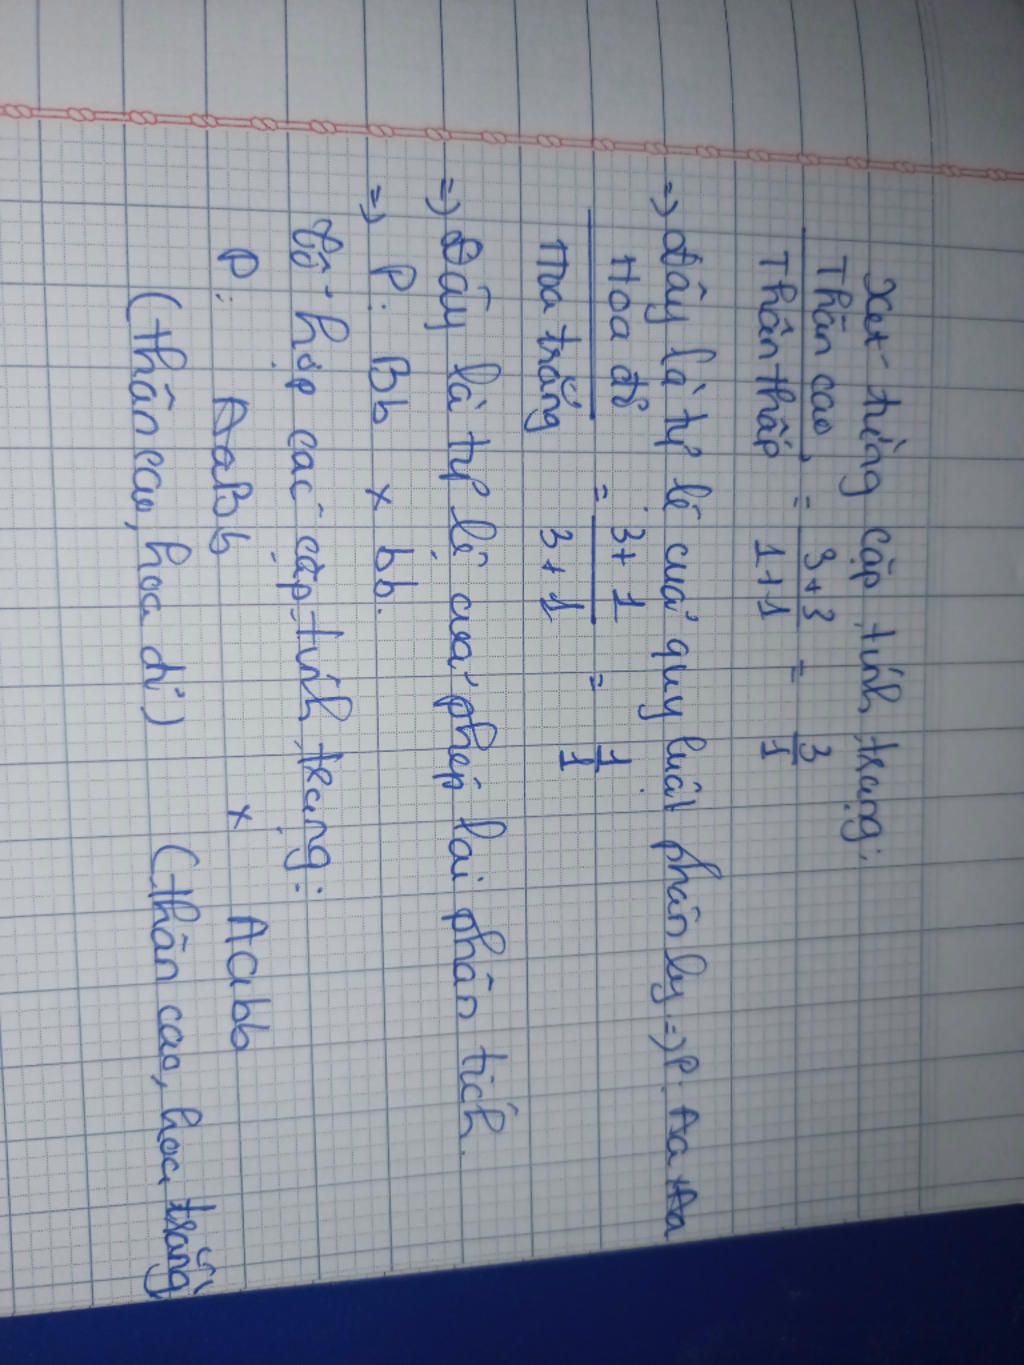 Xét từng cặp tính trạng:
Thân cao / Thân thấp = 3+3 / 1+1 = 3/1
=> Đây là tỷ lệ của quy luật phân ly => P: Aa x Aa
Hoa đỏ / Hoa trắng = 3+1 / 3+1 = 1/1
=> Đây là tỷ lệ của phép lai phân tích.
=> P: Bb x bb.
Tổ hợp các cặp tính trạng:
P: AaBb x Aabb
(thân cao, hoa đỏ) (thân cao, hoa trắng